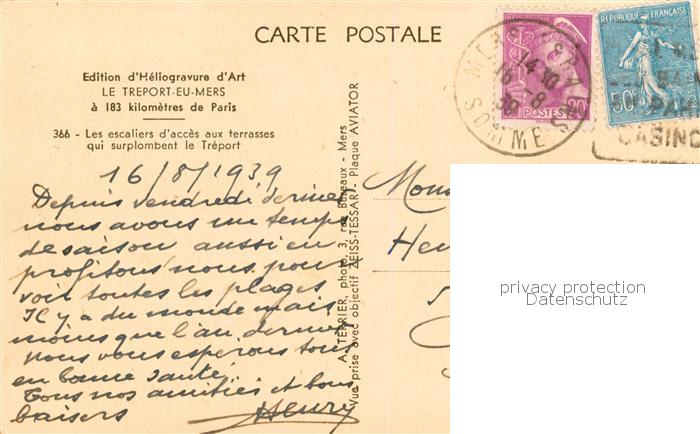 CARTE POSTALE
Edition d'Héliogravure d'Art
LE TREPORT-EU-MERS
à 183 kilomètres de Paris
366 - Les escaliers d'accès aux terrasses
qui surplombent le Tréport
16/8/1939
Depuis vendredi dernier
nous avons un temps
de saison aussi en
profitons nous pour
voir toutes les plages
Il y a du monde mais
moins que l'an dernier
Nous vous espérons tous
en bonne santé.
Tous nos amitiés et bons
baisers Henry
A. TERRIER, photo, 3, rue Buzeaux - Mers
Vue prise avec objectif ZEISS-TESSAR - Plaque AVIATOR
MERS
14 30
16 - 8
39
SOMME
POSTES
20
REPUBLIQUE FRANÇAISE
50
CASINO
Hen
privacy protection
Datenschutz